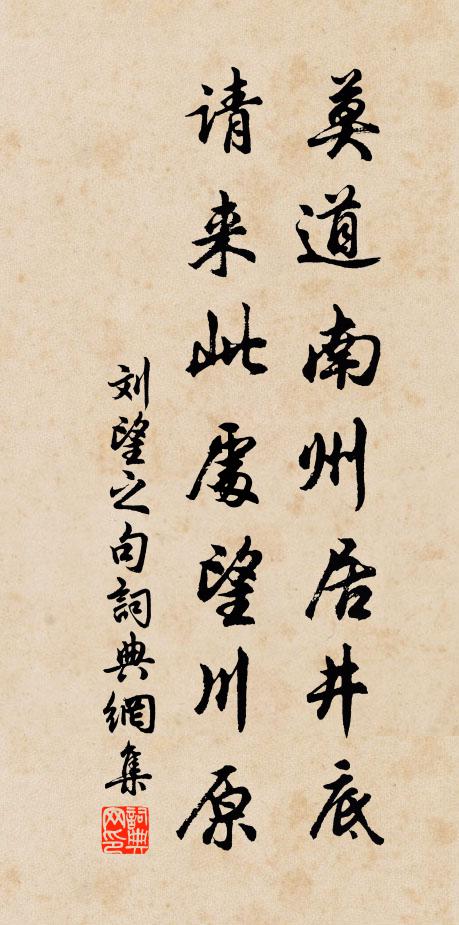 莫道南州居井底
请来此處望川原
刘望之句詞典網集
詞典网印